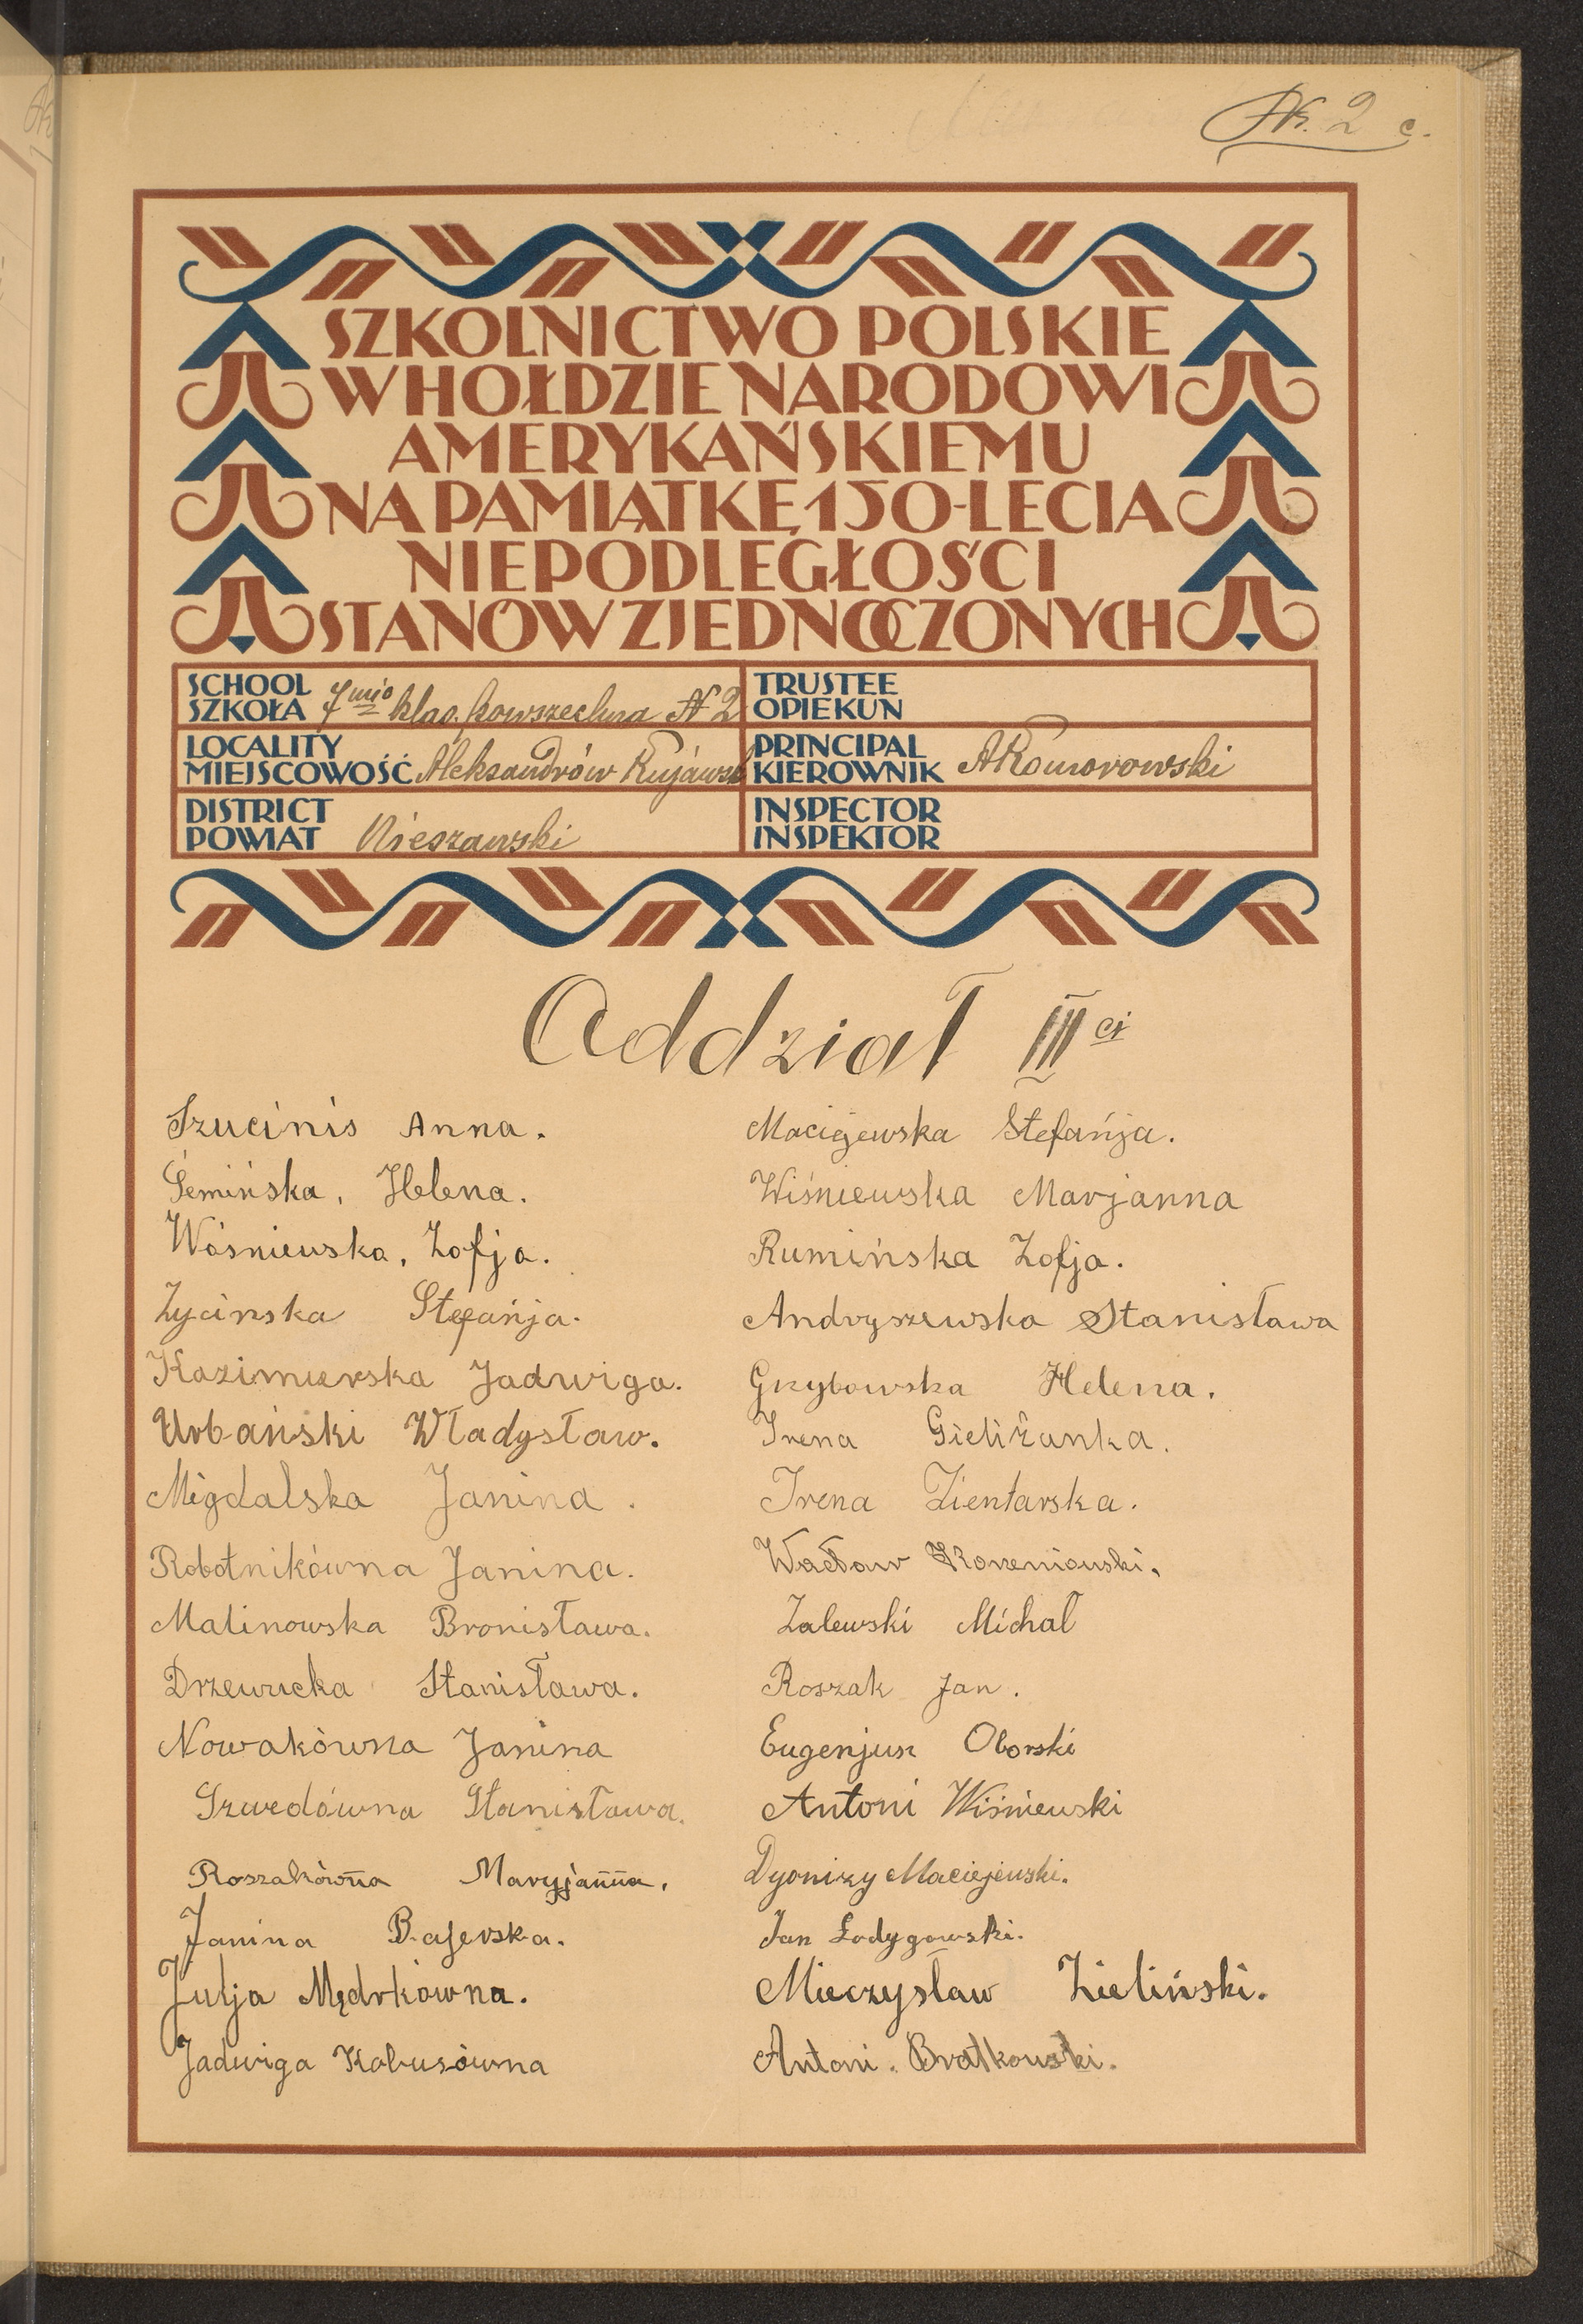 Nr. 2 c.
SZKOLNICTWO POLSKIE
W HOŁDZIE NARODOWI
AMERYKAŃSKIEMU
NA PAMIĄTKĘ 150-LECIA
NIEPODLEGŁOŚCI
STANÓW ZJEDNOCZONYCH
SCHOOL
SZKOŁA 7mio klas. powszechna N 2
LOCALITY
MIEJSCOWOŚĆ Aleksandrów Kujawsk
DISTRICT
POWIAT Nieszawski
TRUSTEE
OPIEKUN
PRINCIPAL
KIEROWNIK AKomorowski
INSPECTOR
INSPEKTOR
Oddział III ci
Szucinis Anna.
Śemińska, Helena.
Wośniewska, Zofja.
Zycinska Stefańja.
Kazimierska Jadwiga.
Urbański Władysław.
Migdalska Janina.
Robotnikówna Janina.
Malinowska Bronisława.
Drzewucka Stanisława.
Nowakówna Janina
Szwedówna Stanisława.
Roszakówna Maryjanna.
Janina Bajerska.
Julja Mędrkówna.
Jadwiga Kabusówna
Maciejewska Stefańja.
Wiśniewska Marjanna
Rumińska Zofja.
Andryszewska Stanisława
Grzybowska Helena.
Irena Gieliżanka.
Irena Zientarska.
Wacław Korzeniowski.
Zalewski Michał
Roszak Jan.
Eugenjusz Oborski
Antoni Wiśniewski
Dyonizy Maciejewski.
Jan Łodygowski.
Mieczysław Zieliński.
Antoni. Bratkowski.